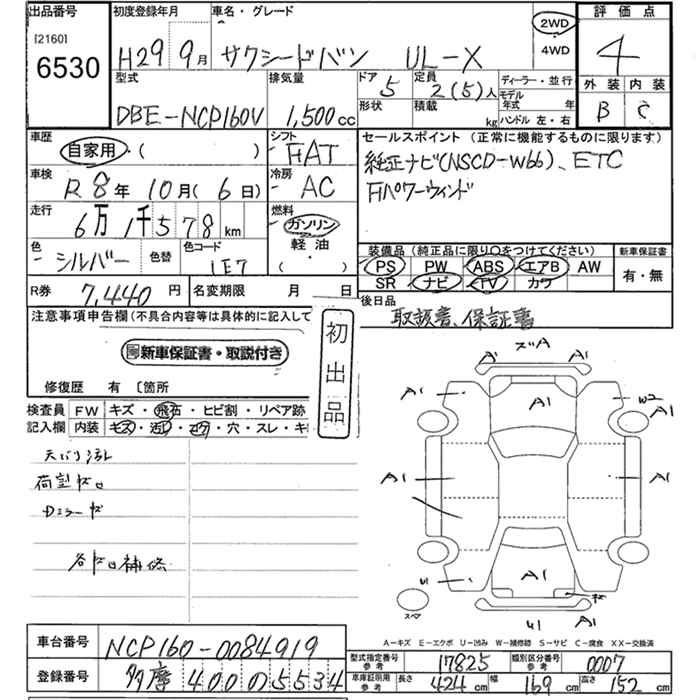 出品番号
[2160]
6530
初度登録年月
H29 9月
車名・グレード
サクシードバン UL-X
2WD
4WD
評価点
4
外装 内装
B C
型式
DBE-NCP160V
排気量
1,500cc
ドア 5
形状
定員 2(5)人
積載 kg
ディーラー・並行
モデル年式 年
ハンドル 左・右
車歴
自家用・( )
シフト
FAT
車検
R8年10月(6日)
冷房
AC
走行
6万1千578km
燃料
ガソリン
軽油
・( )
色
シルバー 色替
色コード
1E7
セールスポイント(正常に機能するものに限ります)
純正ナビ(NSCD-W66)、ETC
Fパワーウィンド
装備品(純正品に限り○をつけてください)
PS PW ABS エアB AW
SR ナビ TV カワ
新車保証書
有・無
R券 7,440円
名変期限 月 日
後日品
取扱書、保証書
注意事項申告欄(不具合内容等は具体的に記入して
新車保証書・取説付き
修復歴 有 〔箇所
初出品
検査員
記入欄
FW キズ・飛石・ヒビ割・リペア跡
内装 キズ・汚レ・コゲ・穴・スレ・キ
天バリ汚レ
谷キロ補修
A1
A1
A1
W2
A1
A1
A1
A1
U1
A1
スペア
U1
A1
A-キズ E-エクボ U-凹み W-補修跡 S-サビ C-腐食 XX-交換済
車台番号 NCP160-0084919
登録番号 多摩 400 の 5534
型式指定番号 参考 17825
類別区分番号 参考 0007
車庫証明用 参考 長さ 424cm 幅 169cm 高さ 152cm